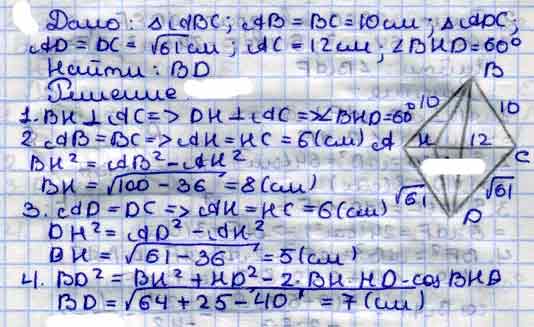 Дано: △ABC; AB = BC = 10см; △ADC;
AD = DC = √61 см; AC = 12см; ∠BHD = 60°
Найти: BD
Решение.
1. BH ⊥ AC => DH ⊥ AC => ∠BHD = 60°
2. AB = BC => AH = HC = 6(см)
BH² = AB² - AH²
BH = √100 - 36 = 8(см)
3. AD = DC => AH = HC = 6(см)
DH² = AD² - AH²
BH = √61 - 36 = 5(см)
4. BD² = BH² + HD² - 2·BH·HD·cos BHD
BD = √64 + 25 - 40 = 7(см)
B
10 10
A H 12 C
√61 √61
D